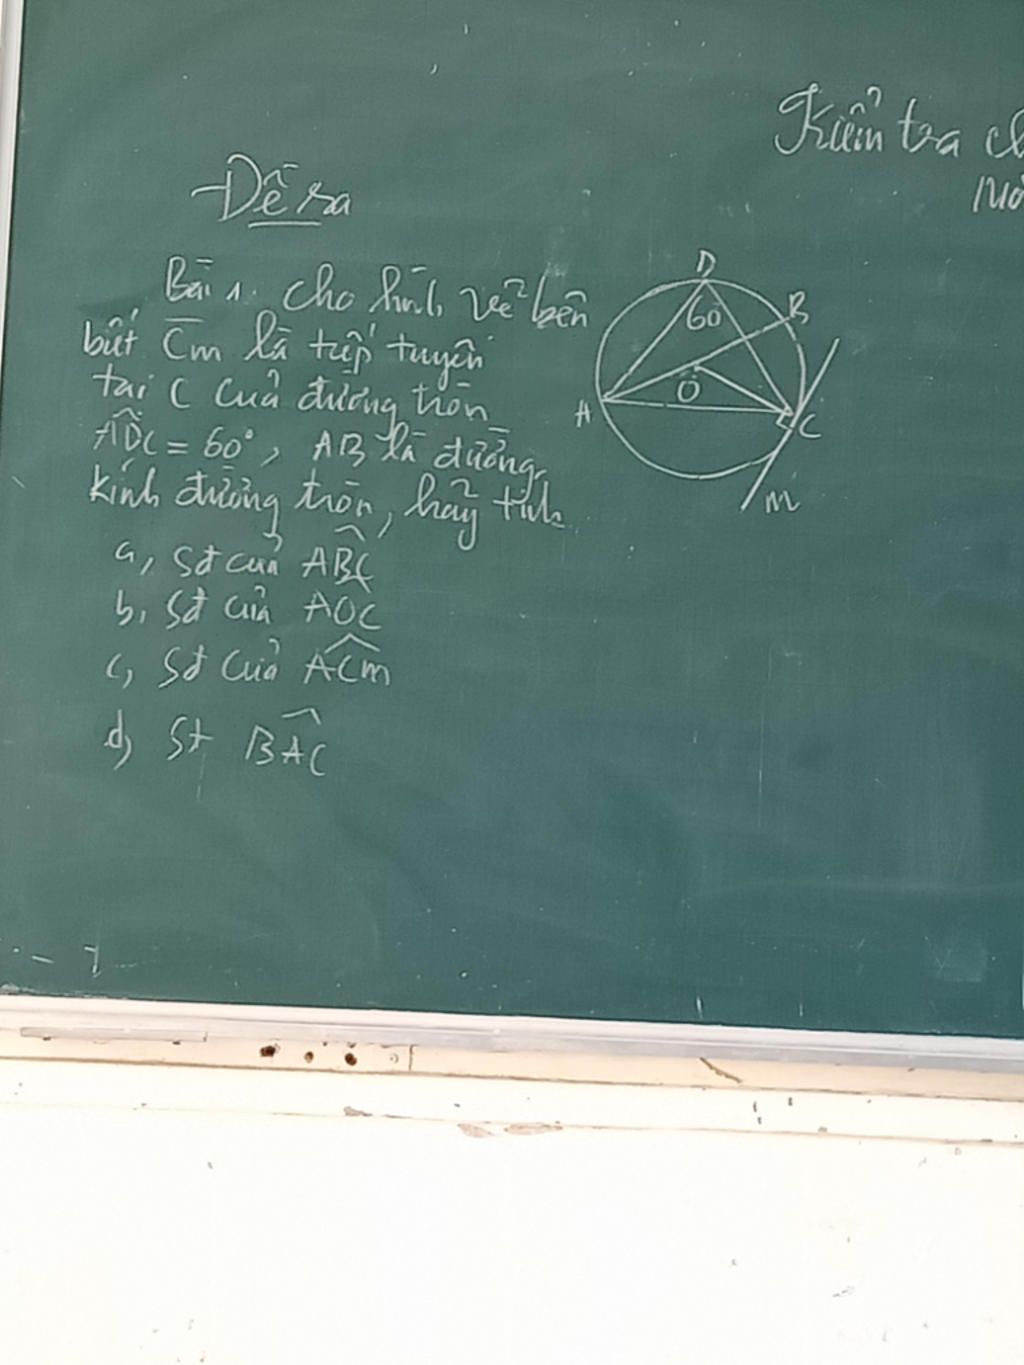 Kiểm tra
Đề ra
Bài 1. Cho hình vẽ bên
biết Cm là tiếp tuyến
tại C của đường tròn
ADC = 60°, AB là đường
kính đường tròn, hãy tính
a, Sđ của ABC
b, Sđ của AOC
c, Sđ của ACm
d, Sđ BAC
D
B
60
O
A
C
m